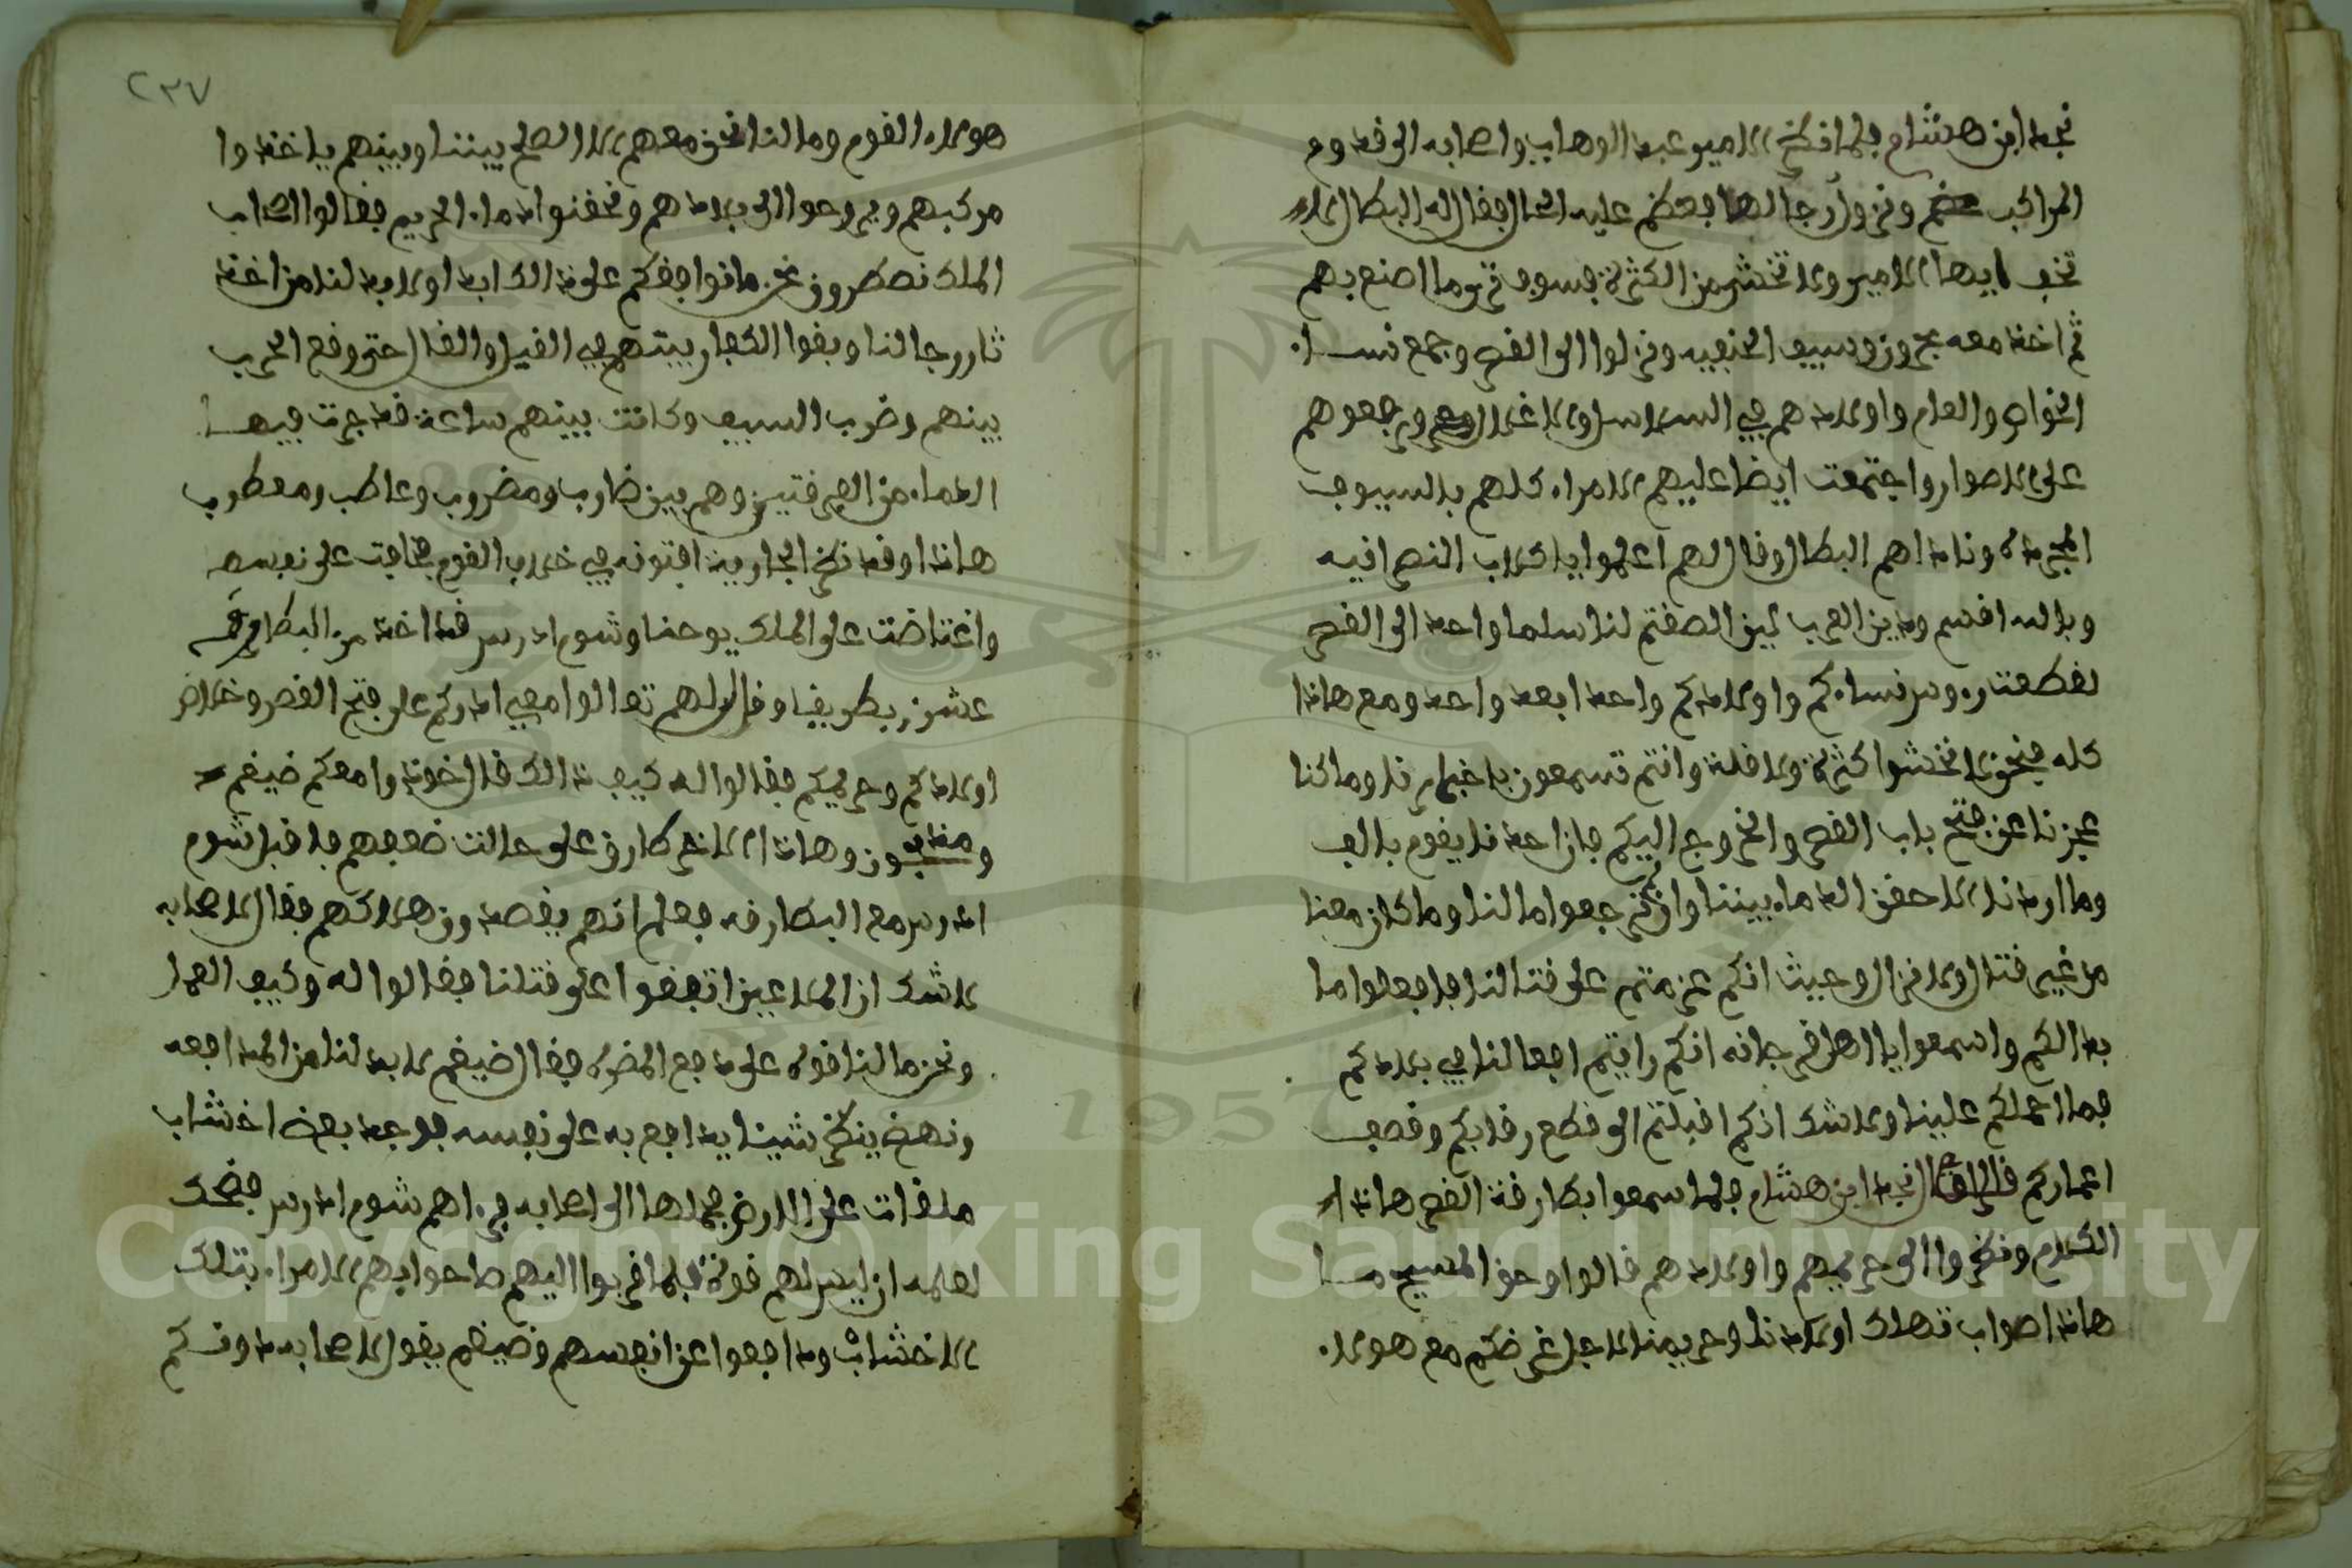 نجد ابن هشام فلما نظر الامير عبد الوهاب واصحابه الى قدوم
المراكب ونزول رجالها فعظم عليه الحال فقال له البطال لا
تخف ايها الامير ولا تخش من الكثرة فسوف ترى ما اصنع بهم
ثم اخذ معه عجوز وسيف الحنفيه ونزلوا الى القصر وجمع نساء
الخواص والعام واولادهم في السلاسل والاغلال ورفعوهم
على الاصوار واجتمعت ايضا عليهم الامراء كلهم بالسيوف
المجردة وناداهم البطال وقال لهم اعلموا يا كلاب النصرانيه
وبالله اقسم ودين العرب لين الصقتم لنا سلما واحدا الى القصر
لقطعت رءوس نساءكم واولادكم واحدا بعد واحد ومع هاذا
كله فنحن لا نخشوا كثرة ولا قلة وانتم تسمعون باخبارنا وما كنا
عجزنا عن فتح باب القصر والخروج اليكم فان احدنا يقوم بالف
وما اردنا الا حقن الدماء بيننا وان ترجعوا مالنا وما كان معنا
من غير قتال ولا نزال وحيث انكم عزمتم على قتالنا فافعلوا ما
بدالكم واسمعوا يا اهل افرجانه انكم رايتم افعالنا في بلادكم
فما احملكم علينا ولا شك انكم اقبلتم الى قطع رقابكم وقصف
اعماركم قال نجد ابن هشام فلما سمعوا بطارقة القصر هاذا
الكلام ونظروا الى حريمهم واولادهم قالوا وحق المسيح ما
هاذا صواب تهلك اولادنا وحريمنا لاجل غرضكم مع هولاء
٢٣٧
هولاء القوم وما لنا نحن معهم الا الصلح بيننا وبينهم ياخذوا
مركبهم ويروحوا الى بلادهم ونحقنوا دماء الحريم فقالوا اصحاب
الملك نصطرون نحن ما نوافقكم على ذالك ابدا ولا بد لنا من اخذ
ثار رجالنا وبقوا الكفار بيتهم في القيل والقال حتى وقع الحرب
بينهم وضرب السيف وكانت بينهم ساعة قد جرت فيها
الدماء من الفرقتين وهم بين ضارب ومضروب وعاطب ومعطوب
هاذا وقد نظر الجارية افتونه في خراب القوم فخافت على نفسها
واغتاضت على الملك يوحنا وشوم ادرس قد اخذ من البطارقه
عشرين بطريقا وقال لهم تعالوا معي ادركم على فتح القصر وخلاص
اولادكم وحريمكم فقالوا له كيف ذالك قال خوذوا معكم ضيغم
وميمون وهاذا الاخر طارق على حالت ضعفهم فاقبل شوم
ادرس مع البطارقه فعلم انهم يقصدون هلاكهم فقال لاصحابه
لا شك ان الملاعين اتفقوا على قتلنا فقالوا له وكيف العمل
ونحن ما لنا قوه على دافع المضره فقال ضيغم لا بد لنا من المدافعه
ونهض ينظر شيئا يدافع به على نفسه فوجد بعض اخشاب
ملقات على الارض فحملها الى اصحابه فراهم شوم ادرس فضحك
لعلمه ان ليس لهم قوة فلما قربوا اليهم صاحوا بهم الامراء بتلك
الاخشاب ودافعوا عن انفسهم وضيغم يقول لاصحابه دونكم